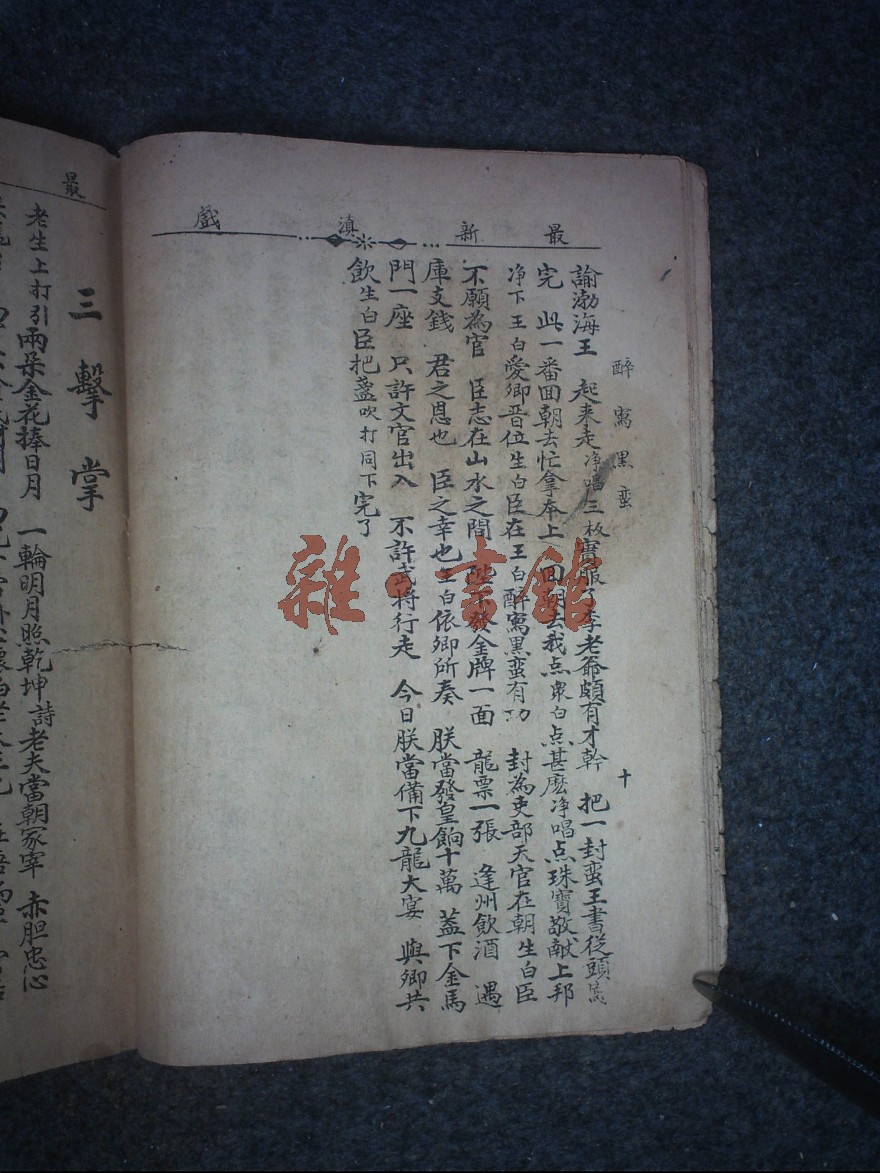 最新滇戲
醉寫黑蛮
十
諭渤海王 起来走净唱三枚寔服了李老爺頗有才幹 把一封蛮王書從頭
完 此一番囬朝去忙拿本上 囬朝去我点衆白点甚麽净唱点珠寶敬献上邦
净下王白愛卿晋位生白臣在王白醉寫黑蛮有功 封為吏部天官在朝生白臣
不願為官 臣志在山水之間 陛下發金牌一面 龍票一張 逢州飲酒 遇
庫支錢 君之恩也 臣之幸也王白依卿所奏 朕當發皇餉十萬 蓋下金馬
門一座 只許文官出入 不許武将行走 今日朕當備下九龍大宴 與卿共
飲生白臣把盞吹打同下完了
雜書館
最
三擊掌
老生上打引兩朶金花捧日月 一輪明月照乾坤詩老夫當朝冢宰 赤胆忠心